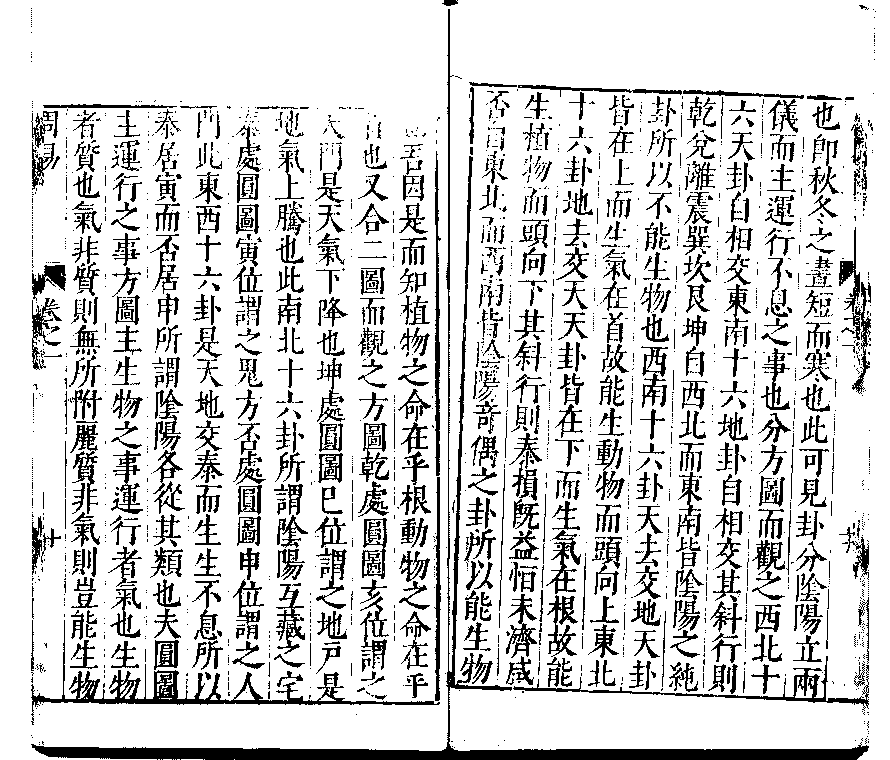 也卽秋冬之晝短而寒也此可見卦分陰陽立兩
儀而主運行不息之事也分方圖而觀之西北十
六天卦自相交東南十六地卦自相交其斜行則
乾兌離震巽坎艮坤自西北而東南皆陰陽之純
卦所以不能生物也西南十六卦天去交地天卦
皆在上而生氣在首故能生動物而頭向上東北
十六卦地去交天天卦皆在下而生氣在根故能
生植物而頭向下其斜行則泰損旣益恒未濟咸
否自東北而西南皆陰陽奇偶之卦所以能生物
也吾因是而知植物之命在乎根動物之命在乎
首也又合二圖而觀之方圖乾處圓圖亥位謂之
天門是天氣下降也坤處圓圖巳位謂之地戸是
地氣上騰也此南北十六卦所謂陰陽互藏之宅
泰處圓圖寅位謂之鬼方否處圓圖申位謂之人
門此東西十六卦是天地交泰而生生不息所以
泰居寅而否居申所謂陰陽各從其類也夫圓圖
主運行之事方圖主生物之事運行者氣也生物
者質也氣非質則無所附麗質非氣則豈能生物
周易
卷之一